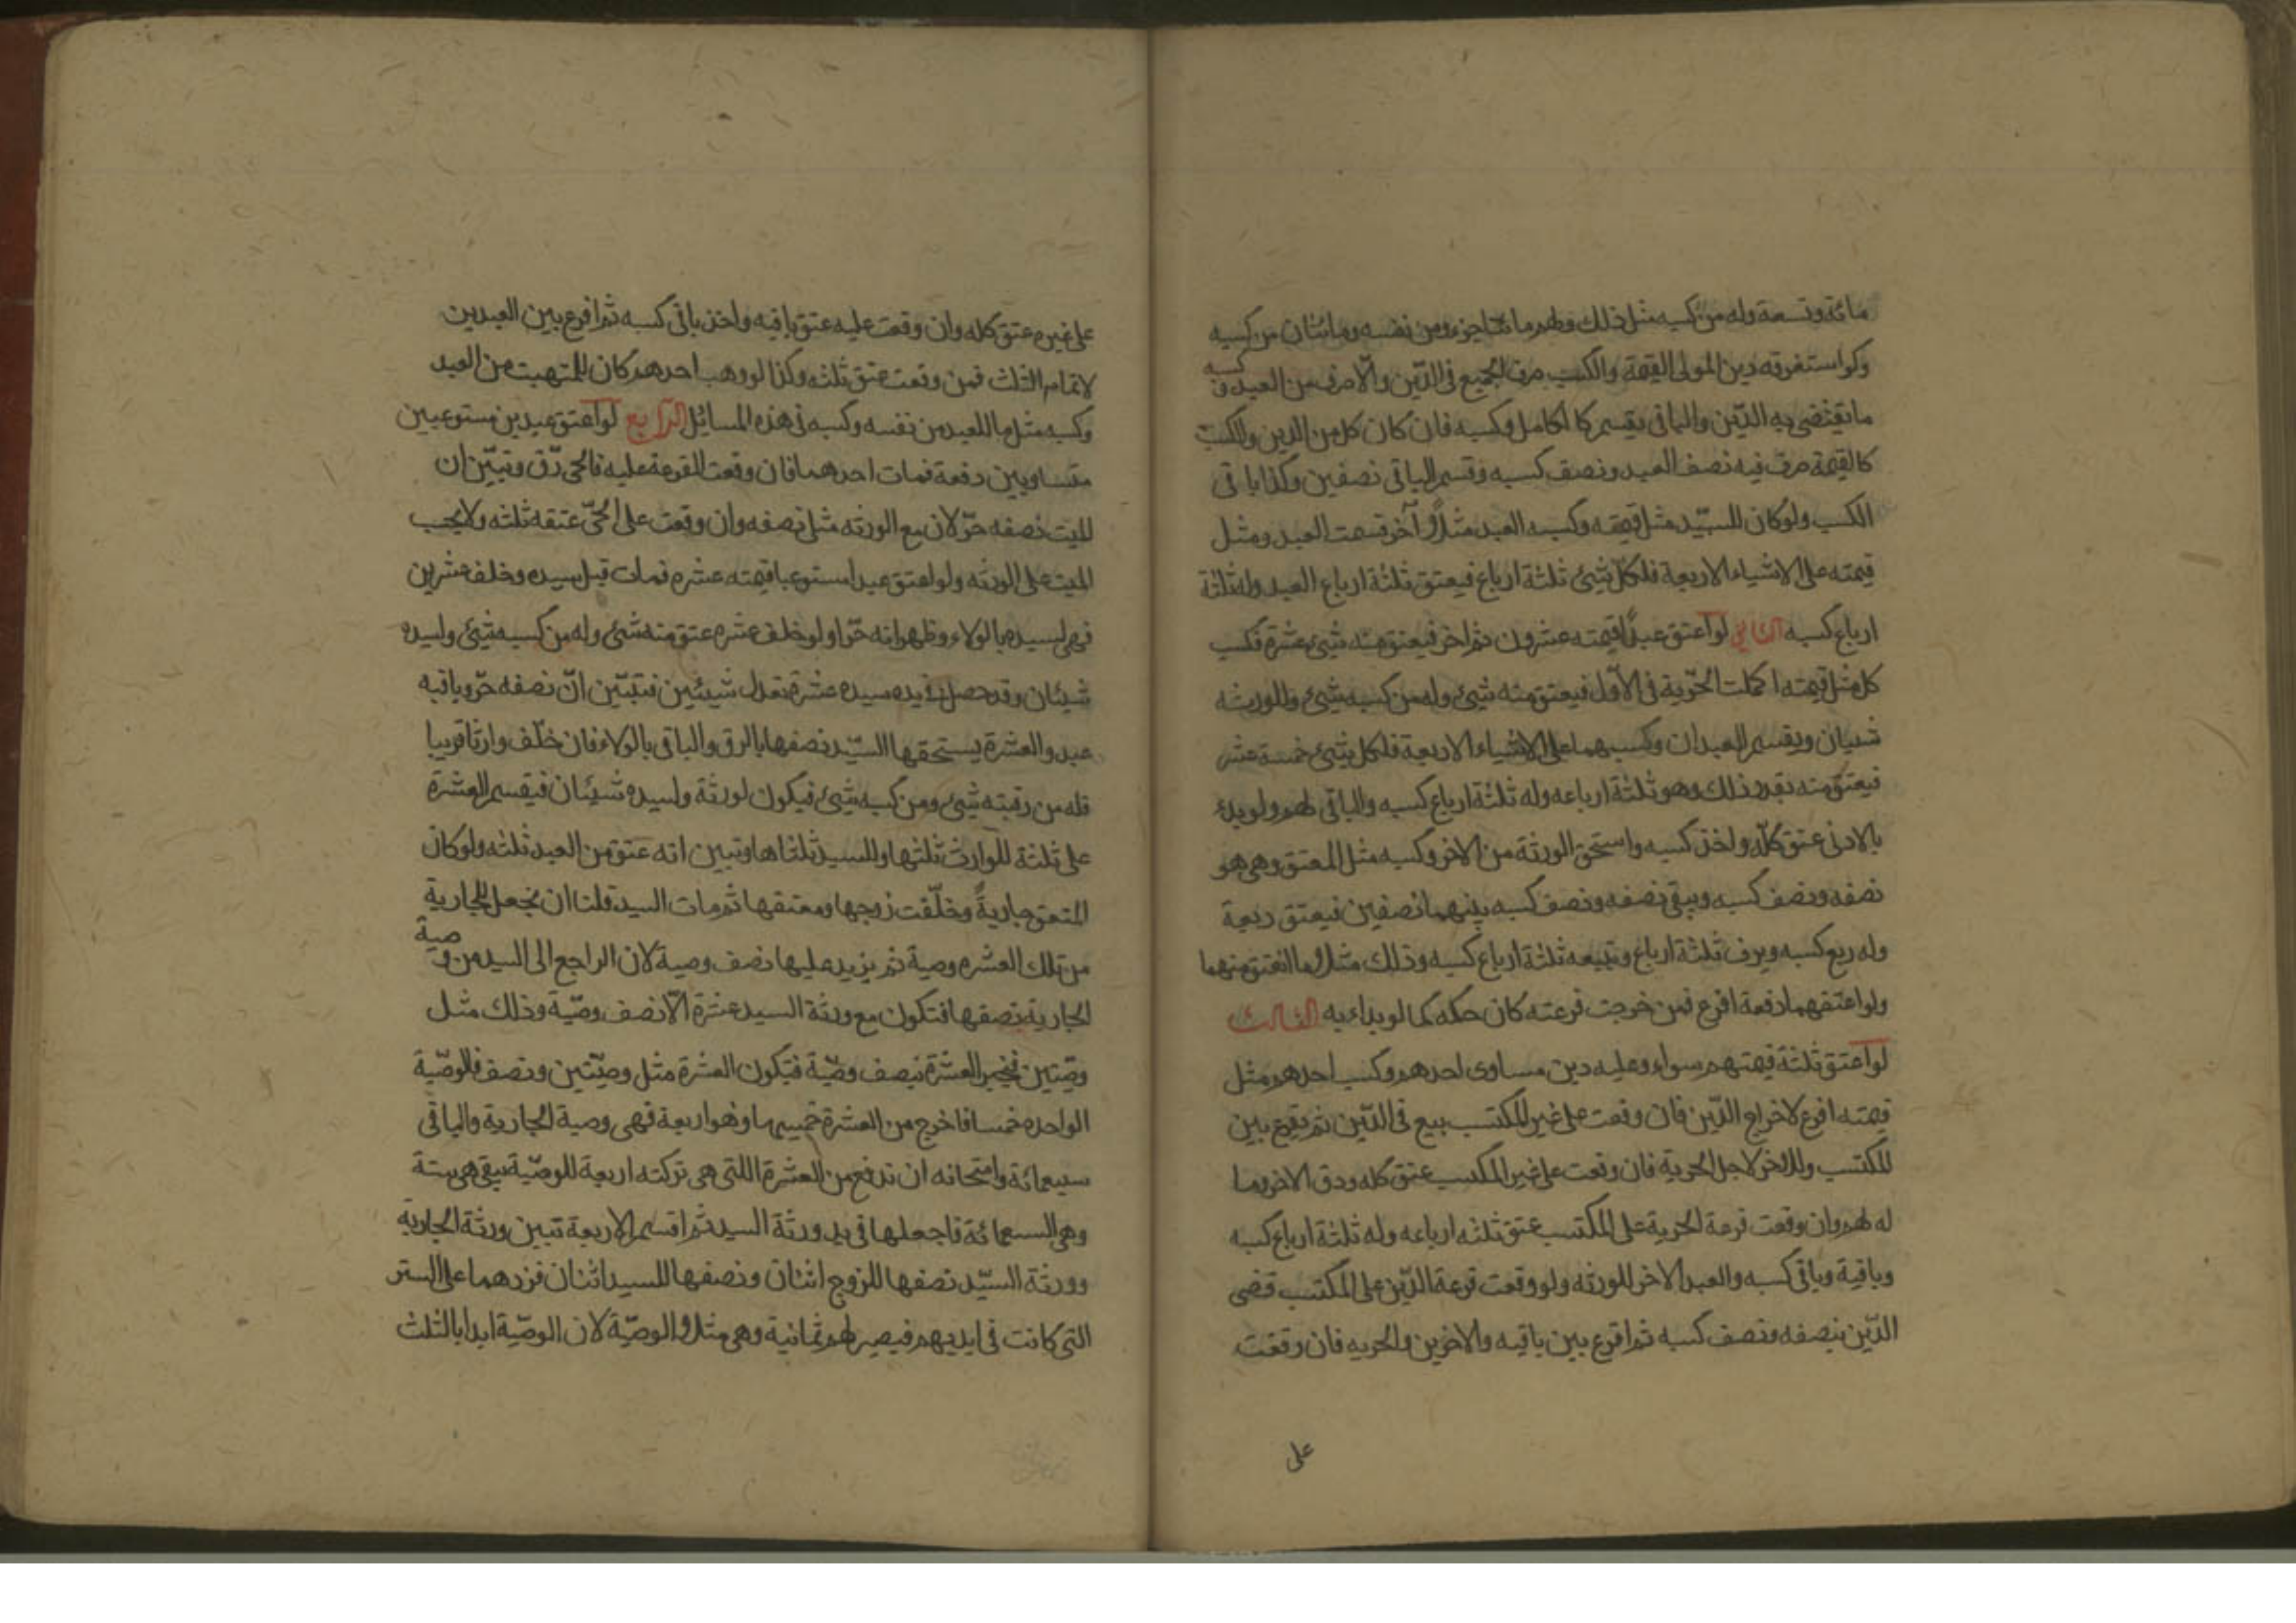 مائة وتسعة وله من كسبه مثل ذلك ولهم مائتا جزء من نفسه ومائتان من كسبه
ولو استغرقه دين المولى القيمة والكسب صرف الجميع في الدّين والّا صرف من العبد و
كسبه
ما يقتضى به الدّين والباقى يقسم كا لكامل وكسبه فان كان كل من الدين والكسب
كالقيمة صرف فيه نصف العبد ونصف كسبه وقسم الباقى نصفين وكذا باقى
الكسب ولو كان للسيّد مثل قيمته وكسبه العبد مثلاً آخر قسمت العبد ومثل
قيمته على الاشياء الاربعة فلكلّ شيئ ثلثة ارباع فيعتق ثلثة ارباع العبد وله ثلثة
ارباع كسبه الثانى لو اعتق عبداً قيمته عشرون ثم اخر فيعتق منه شيئ عشرة فكسب
كل مثل قيمته اكملت الحرّية في الاوّل فيعتق منه شيئ وله من كسبه شيئ وللورثه
شيان ويقسم العبدان وكسبهما على الاشياء الاربعة فلكل شيئ خمسة عشر
فيعتق منه بقدر ذلك وهو ثلثة ارباعه وله ثلثة ارباع كسبه والباقى لهم ولو بدئ
بالادنى عتق كلّه واخذ كسبه واستحق الورثة من الاخر وكسبه مثل المعتق وهى هو
نصفه ونصف كسبه ويبقى نصفه ونصف كسبه بينهما نصفين فيعتق ربعه
وله ربع كسبه ويرق ثلثة ارباع ويتبعه ثلثة ارباع كسبه وذلك مثلا ما انعتق منهما
ولو اعتقهما دفعة اقرع فمن خرجت قرعته كان حكمه كما لو بداء به الثالث
لو اعتق ثلثة قيمتهم سواء وعليه دين مساوى احدهم وكسب احدهم مثل
قيمته اقرع لاخراج الدّين فان وقعت على غير المكتسب بيع في الدّين ثم يقرع بين
المكتسب والاخر لاجل الحرية فان وقعت على غير المكتسب عتق كله ورق الاخر وما
له لهم وان وقعت قرعة الحرية على المكتسب عتق ثلثه ارباعه وله ثلثة ارباع كسبه
وباقية وباقى كسبه والعبد الاخر للورثه ولو وقعت قرعة الدّين على المكتسب قضى
الدّين بنصفه ونصف كسبه ثم اقرع بين باقيه والاخرين والحريه فان وقعت
على
على غيره عتق كله وان وقعت عليه عتق باقيه واخذ باقى كسبه ثم اقرع بين العبدين
لاتمام الثلث فمن وقعت عتق ثلثه وكذا لو وهب احدهم كان للمتهب من العبد
وكسبه مثل ما للعبد من نفسه وكسبه في هذه المسائل الرابع لو اعتق عبدين مستوعبين
متساويين دفعة فمات احدهما فان وقعت القرعة عليه فالحى رّق وتبيّن ان
الميت نصفه حرّ لان مع الورثه مثلى نصفه وان وقعت على الحىّ عتقه ثلثه ولا يحسب
الميت على الورثه ولو اعتق عبدا مستوعبا قيمته عشره فمات قبل سيده وخلف عشرين
فهى لسيده بالولاء وظهر انه حرّ او لو خلف عشره عتق منه شئ وله من كسبه شيئ ولسيده
شيئان وقد حصل في يده سيده عشرة تعدل شيئين فتبيّن انّ نصفه حرّ وباقيه
عبد والعشرة يستحقها السيّد نصفها بالرق والباقى بالولاء فان خلّف وارثا قريبا
فله من رقبته شئ ومن كسبه شيئ فيكون لورثة ولسيده شيئان فيقسم العشرة
على ثلثة للوارث ثلثها وللسيد ثلثاها وتبين انه عتق من العبد ثلثه ولو كان
المتعق جاريةً وخلّفت زوجها ومعتقها ثم مات السيد قلنا ان نجعل للجارية
من تلك العشره وصية ثم يزيد عليها نصف وصية لان الراجع الى السيد من و
صية
الجارية نصفها فتكون مع ورثة السيد عشرة الّا نصف وصيّة وذلك مثل
وصّيتين فنجبر العشرة بنصف وصيّة فيكون العشرة مثل وصيّتين ونصف فالوصّية
الواحده خمسا فاخرج من العشرة خميسها وهو اربعة فهى وصية الجارية والباقى
سبعمائة وامتحانه ان تدفع من العشرة اللتى هى تركته اربعة للوصّية يبقى هى ستة
وهى السبعمائة فاجعلها في يد ورثة السيد ثم اقسم الاربعة تبين ورثة الجارية
وورثة السيّد نصفها للزوج اثنان ونصفها للسيد اثنان فزدهما على الستر
التى كانت في ايديهم فيصير لهم ثمانية وهى مثلا الوصيّة لان الوصّية ابدا بالثلث